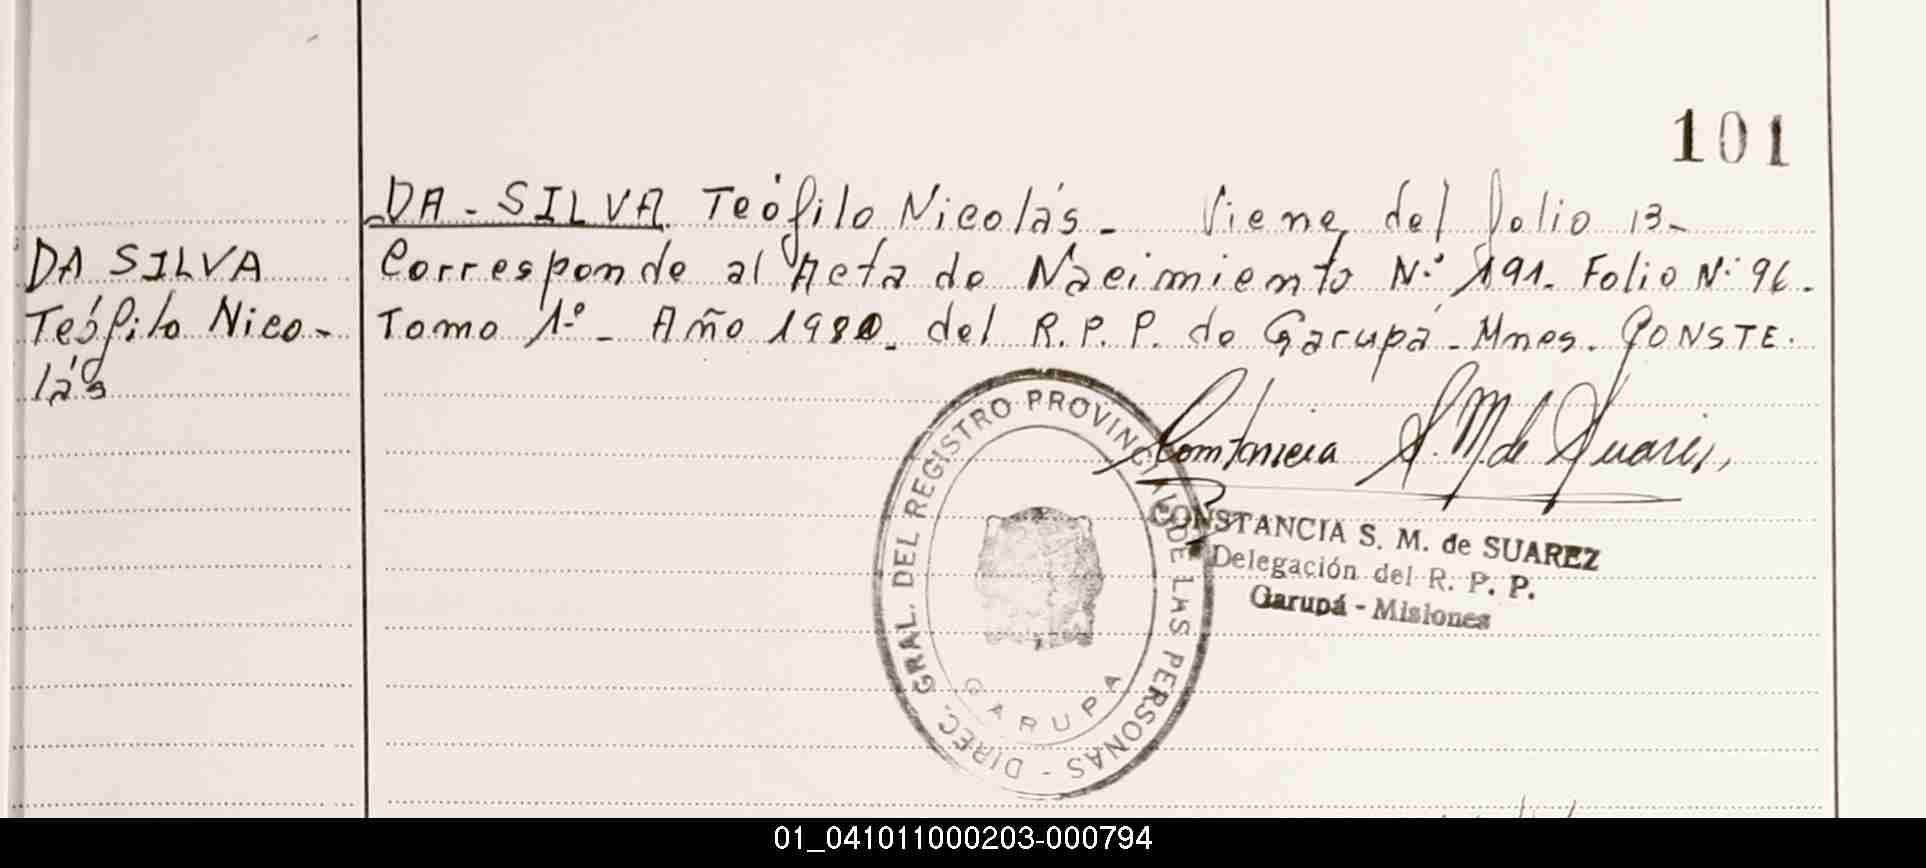 101
DA - SILVA Teófilo Nicolás - Viene del folio 13 -
DA SILVA
Teófilo Nico-
lás
Corresponde al Acta de Nacimiento N.º 191. Folio Nº 96.
Tomo 1º - Año 1980. del R. P. P. de Garupá - Mnes. CONSTE.
Constancia S. M. de Suarez
CONSTANCIA S. M. de SUAREZ
Delegación del R. P. P.
Garupá - Misiones
DIREC. GRAL. DEL REGISTRO PROVINCIAL DE LAS PERSONAS -
GARUPA
01_041011000203-000794